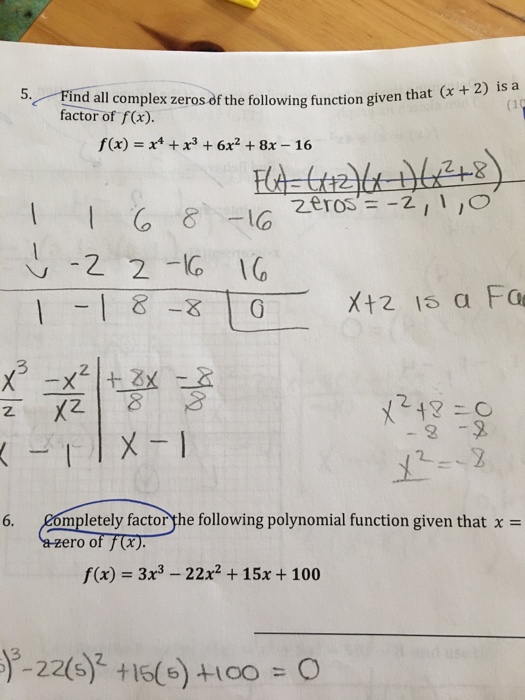 5. Find all complex zeros of the following function given that (x + 2) is a
factor of f(x).
f(x) = x⁴ + x³ + 6x² + 8x − 16
F(x)=(x+2)(x-1)(x²+8)
zeros = -2, 1, 0
1 1 6 8 -16
↓ -2 2 -16 16
1 -1 8 -8 0
x+2 is a
x³ -x² + 8x -8
2 x2 8 8
- 1 x - 1
x²+8=0
-8 -8
x²=-8
6. Completely factor the following polynomial function given that x =
a zero of f(x).
f(x) = 3x³ − 22x² + 15x + 100
)³-22(5)² +15(5) +100 = 0